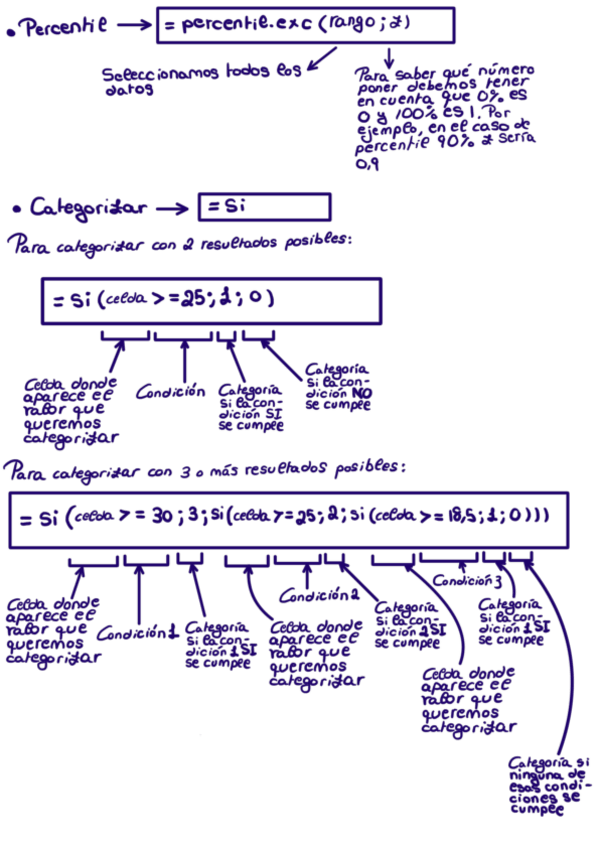 • Percentil → = percentil.exc (rango; z)
Seleccionamos todos los
datos
Para saber qué número
poner debemos tener
en cuenta que 0% es
0 y 100% es 1. Por
ejemplo, en el caso de
percentil 90% z sería
0,9
• Categorizar → = Si
Para categorizar con 2 resultados posibles:
= Si (celda >=25; 1; 0)
Celda donde
aparece el
valor que
queremos
categorizar
Condición
Categoría
si la con-
dición SI
se cumple
Categoría
si la con-
dición NO
se cumple
Para categorizar con 3 o más resultados posibles:
= Si (celda >= 30; 3; Si(celda >=25; 2; Si (celda >= 18,5; 1; 0)))
Celda donde
aparece el
valor que
queremos
categorizar
Condición 1
Categoría
si la con-
dición 1 SI
se cumple
Celda donde
aparece el
valor que
queremos
categorizar
Condición 2
Categoría
si la con-
dición 2 SI
se cumple
Celda donde
aparece el
valor que
queremos
categorizar
Condición 3
Categoría
si la con-
dición 1 SI
se cumple
Categoría si
ninguna de
esas condi-
ciones se
cumple